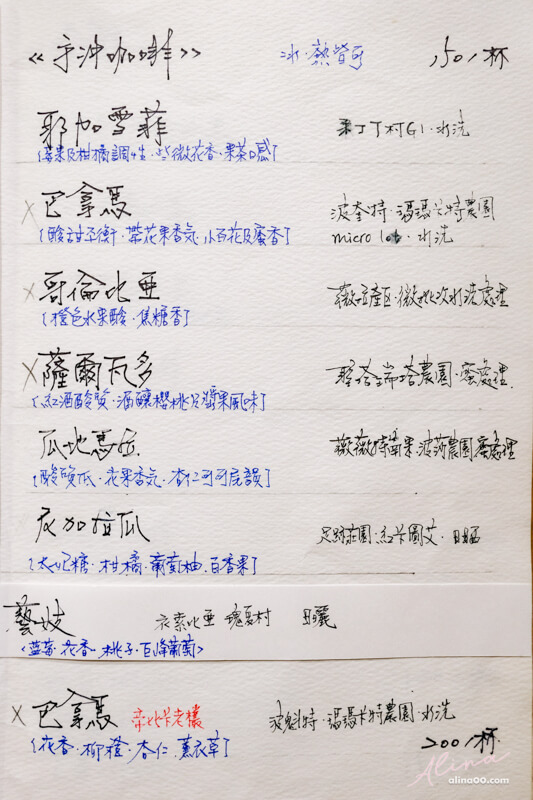 《手沖咖啡》 冰.熱皆可 150/杯
耶加雪菲 果丁丁村G1.水洗
〔莓果及柑橘調性.些微花香.果茶口感〕
×巴拿馬 波奎特.瑪瑪卡特農園
〔酸甜平衡.帶花果香氣.小百花及蜜香〕 micro lot.水洗
×哥倫比亞 薇拉產區.微批次水洗處理
〔橙色水果酸.焦糖香〕
×薩爾瓦多 聖塔瑞塔農園.蜜處理
〔紅酒酸質.酒釀櫻桃及漿果風味〕
瓜地馬拉 薇薇特南果.波莎農園蜜處理
〔酸質低.花果香氣.杏仁可可尾韻〕
尼加拉瓜 足跡莊園.紅卡圖艾.日曬
〔太妃糖.柑橘.葡萄柚.百香果〕
藝妓 衣索比亞 瑰夏村 日曬
<藍莓.花香.桃子.巨峰葡萄>
×巴拿馬 帝比卡老欉 波魁特.瑪瑪卡特農園.水洗
〔花香.柳橙.杏仁.薰衣草〕 200/杯
Alina
alina00.com